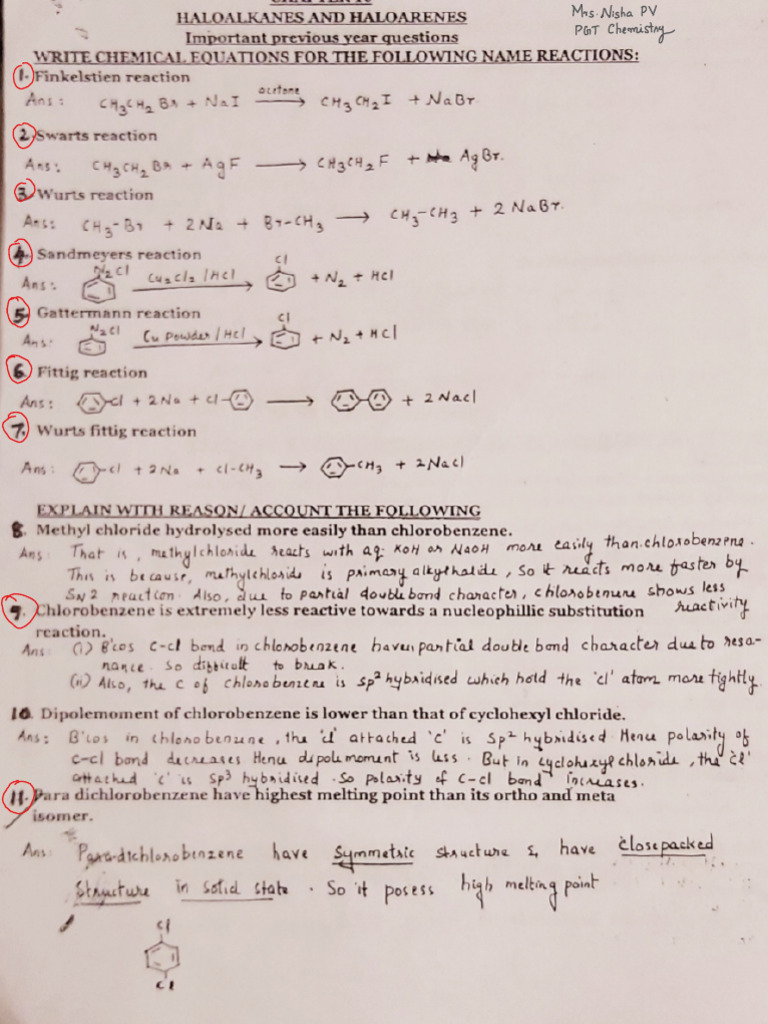 HALOALKANES AND HALOARENES
Mrs. Nisha PV
PGT Chemistry
Important previous year questions
WRITE CHEMICAL EQUATIONS FOR THE FOLLOWING NAME REACTIONS:
1. Finkelstien reaction
Ans : CH3CH2Br + NaI acetone → CH3CH2I + NaBr.
2. Swarts reaction
Ans : CH3CH2Br + AgF → CH3CH2F + AgBr.
3. Wurts reaction
Ans: CH3-Br + 2Na + Br-CH3 → CH3-CH3 + 2 NaBr.
4. Sandmeyers reaction
Ans : N2Cl Cu2Cl2/HCl → Cl + N2 + HCl
5. Gattermann reaction
Ans: N2Cl Cu powder/HCl → Cl + N2 + HCl
6. Fittig reaction
Ans : -Cl + 2Na + Cl- → + 2 NaCl
7. Wurts fittig reaction
Ans : -Cl + 2Na + Cl-CH3 → -CH3 + 2NaCl
EXPLAIN WITH REASON/ ACCOUNT THE FOLLOWING
8. Methyl chloride hydrolysed more easily than chlorobenzene.
Ans : That is, methylchloride reacts with aq. KOH or NaOH more easily than chlorobenzene.
This is because, methylchloride is primary alkylhalide, So it reacts more faster by
SN2 reaction. Also, due to partial double bond character, chlorobenzene shows less
reactivity
9. Chlorobenzene is extremely less reactive towards a nucleophillic substitution
reaction.
Ans : (i) B'cos C-cl bond in chlorobenzene haven partial double bond character due to reso-
nance. So difficult to break.
(ii) Also, the C of chlorobenzene is sp2 hybridised which hold the 'cl' atom more tightly.
10. Dipolemoment of chlorobenzene is lower than that of cyclohexyl chloride.
Ans : B'cos in chlorobenzene, the 'cl' attached 'c' is sp2 hybridised. Hence polarity of
c-cl bond decreases Hence dipolemoment is less. But in cyclohexyl chloride, the 'cl'
attached 'c' is sp3 hybridised. So polarity of C-cl bond increases.
11. Para dichlorobenzene have highest melting point than its ortho and meta
isomer.
Ans: Paradichlorobenzene have Symmetric structure & have closepacked
Structure in solid state. So it posess high melting point
Cl
Cl